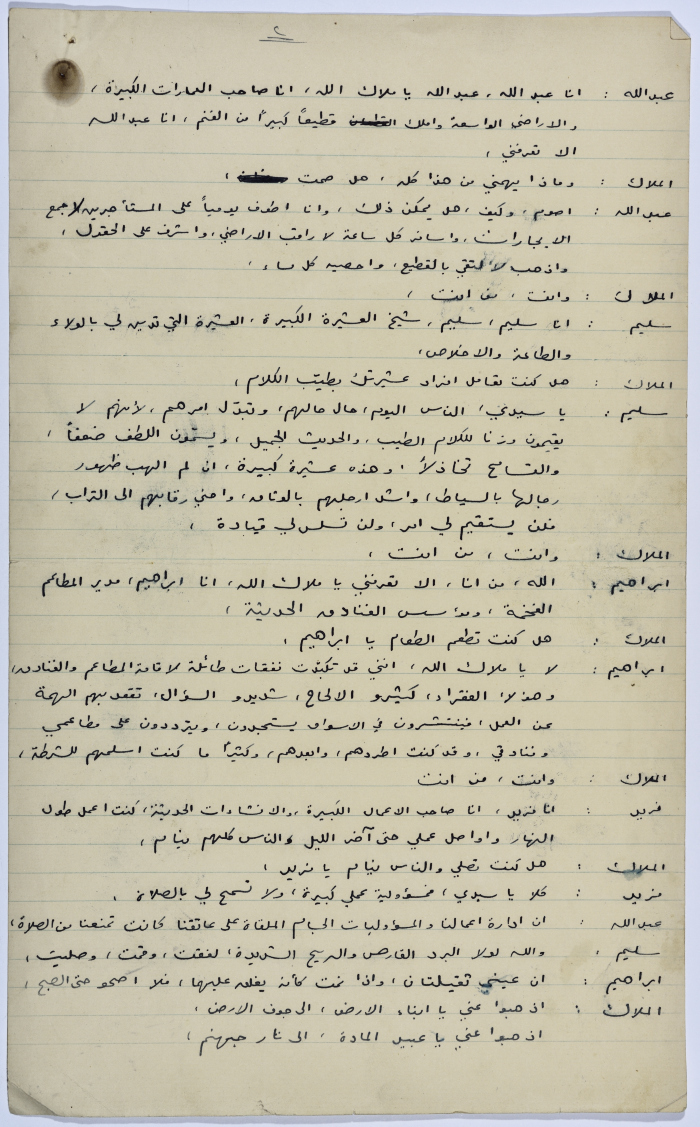 ٢
عبدالله : انا عبد الله، عبد الله يا ملاك الله، انا صاحب العمارات الكبيرة،
والاراضي الواسعة واملك قطيعاً كبيراً من الغنم، انا عبد الله
الا تعرفني،
الملاك : وماذا يهمني من هذا كله، هل صمت
عبدالله : اصوم، وكيف، هل يمكن ذلك، وانا اطوف يومياً على المستأجرين لاجمع
الايجارات، واسافر كل ساعة لاراقب الاراضي، واشرف على الحقول،
واذهب لالتقي بالقطيع، واحصيه كل مساء،
الملاك : وانت، من انت،
سليم : انا سليم، سليم، شيخ العشيرة الكبيرة، العشيرة التي تدين لي بالولاء
والطاعة والاخلاص،
الملاك : هل كنت تعامل افراد عشيرتك بطيّب الكلام،
سليم : يا سيدي، الناس اليوم، حال حالهم، وتبدّل امرهم، لانهم لا
يقيمون وزنا للكلام الطيب، والحديث الجميل، ويسمّون اللطف ضعفاً،
والتسامح تخاذلاً، وهذه عشيرة كبيرة، ان لم الهب ظهور
رجالها بالسياط، واشد ارجلهم بالوثاق، واحني رقابهم الى التراب،
فلن يستقيم لي امر، ولن تسلس لي قيادة،
الملاك : وانت، من انت،
ابراهيم : الله، من انا، الا تعرفني يا ملاك الله، انا ابراهيم، مدير المطاعم
الفخمة، ومؤسس الفنادق الحديثة،
الملاك : هل كنت تطعم الطعام يا ابراهيم،
ابراهيم : لا يا ملاك الله، انني قد تكبّدت نفقات طائلة لاقامة المطاعم والفنادق،
وهؤلاء الفقراء، كثيرو الالحاح، شديدو السؤال، تقعد بهم الهمة
عن العمل، فينتشرون في الاسواق يستجدون، ويترددون على مطاعمي
وفنادقي، وقد كنت اطردهم، وابعدهم، وكثيراً ما كنت اسلمهم للشرطة،
الملاك : وانت، من انت
فريد : انا فريد، انا صاحب الاعمال الكبيرة، والانشاءات الحديثة، كنت اعمل طول
النهار واواصل عملي حتى آخر الليل والناس كلهم نيام،
الملاك : هل كنت تصلي والناس نيام يا فريد،
فريد : كلا يا سيدي، فمسؤولية عملي كبيرة، ولا تسمح لي بالصلاة.
عبدالله : ان ادارة اعمالنا والمسؤوليات الجسام الملقاة على عاتقنا كانت تمنعنا من الصلاة،
سليم : والله لولا البرد القارص والريح الشديدة، لفقت، وقمت، وصليت،
ابراهيم : ان عيني ثقيلتان، واذا نمت كأنه يغلق عليها، فلا اصحو حتى الصبح،
الملاك : اذهبوا عني يا ابناء الارض، الى جوف الارض،
اذهبوا عني يا عبيد المادة، الى نار جهنم،